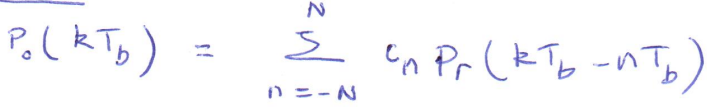 P₀(kT_b) = Σ_{n=-N}^{N} c_n P_r(kT_b - nT_b)